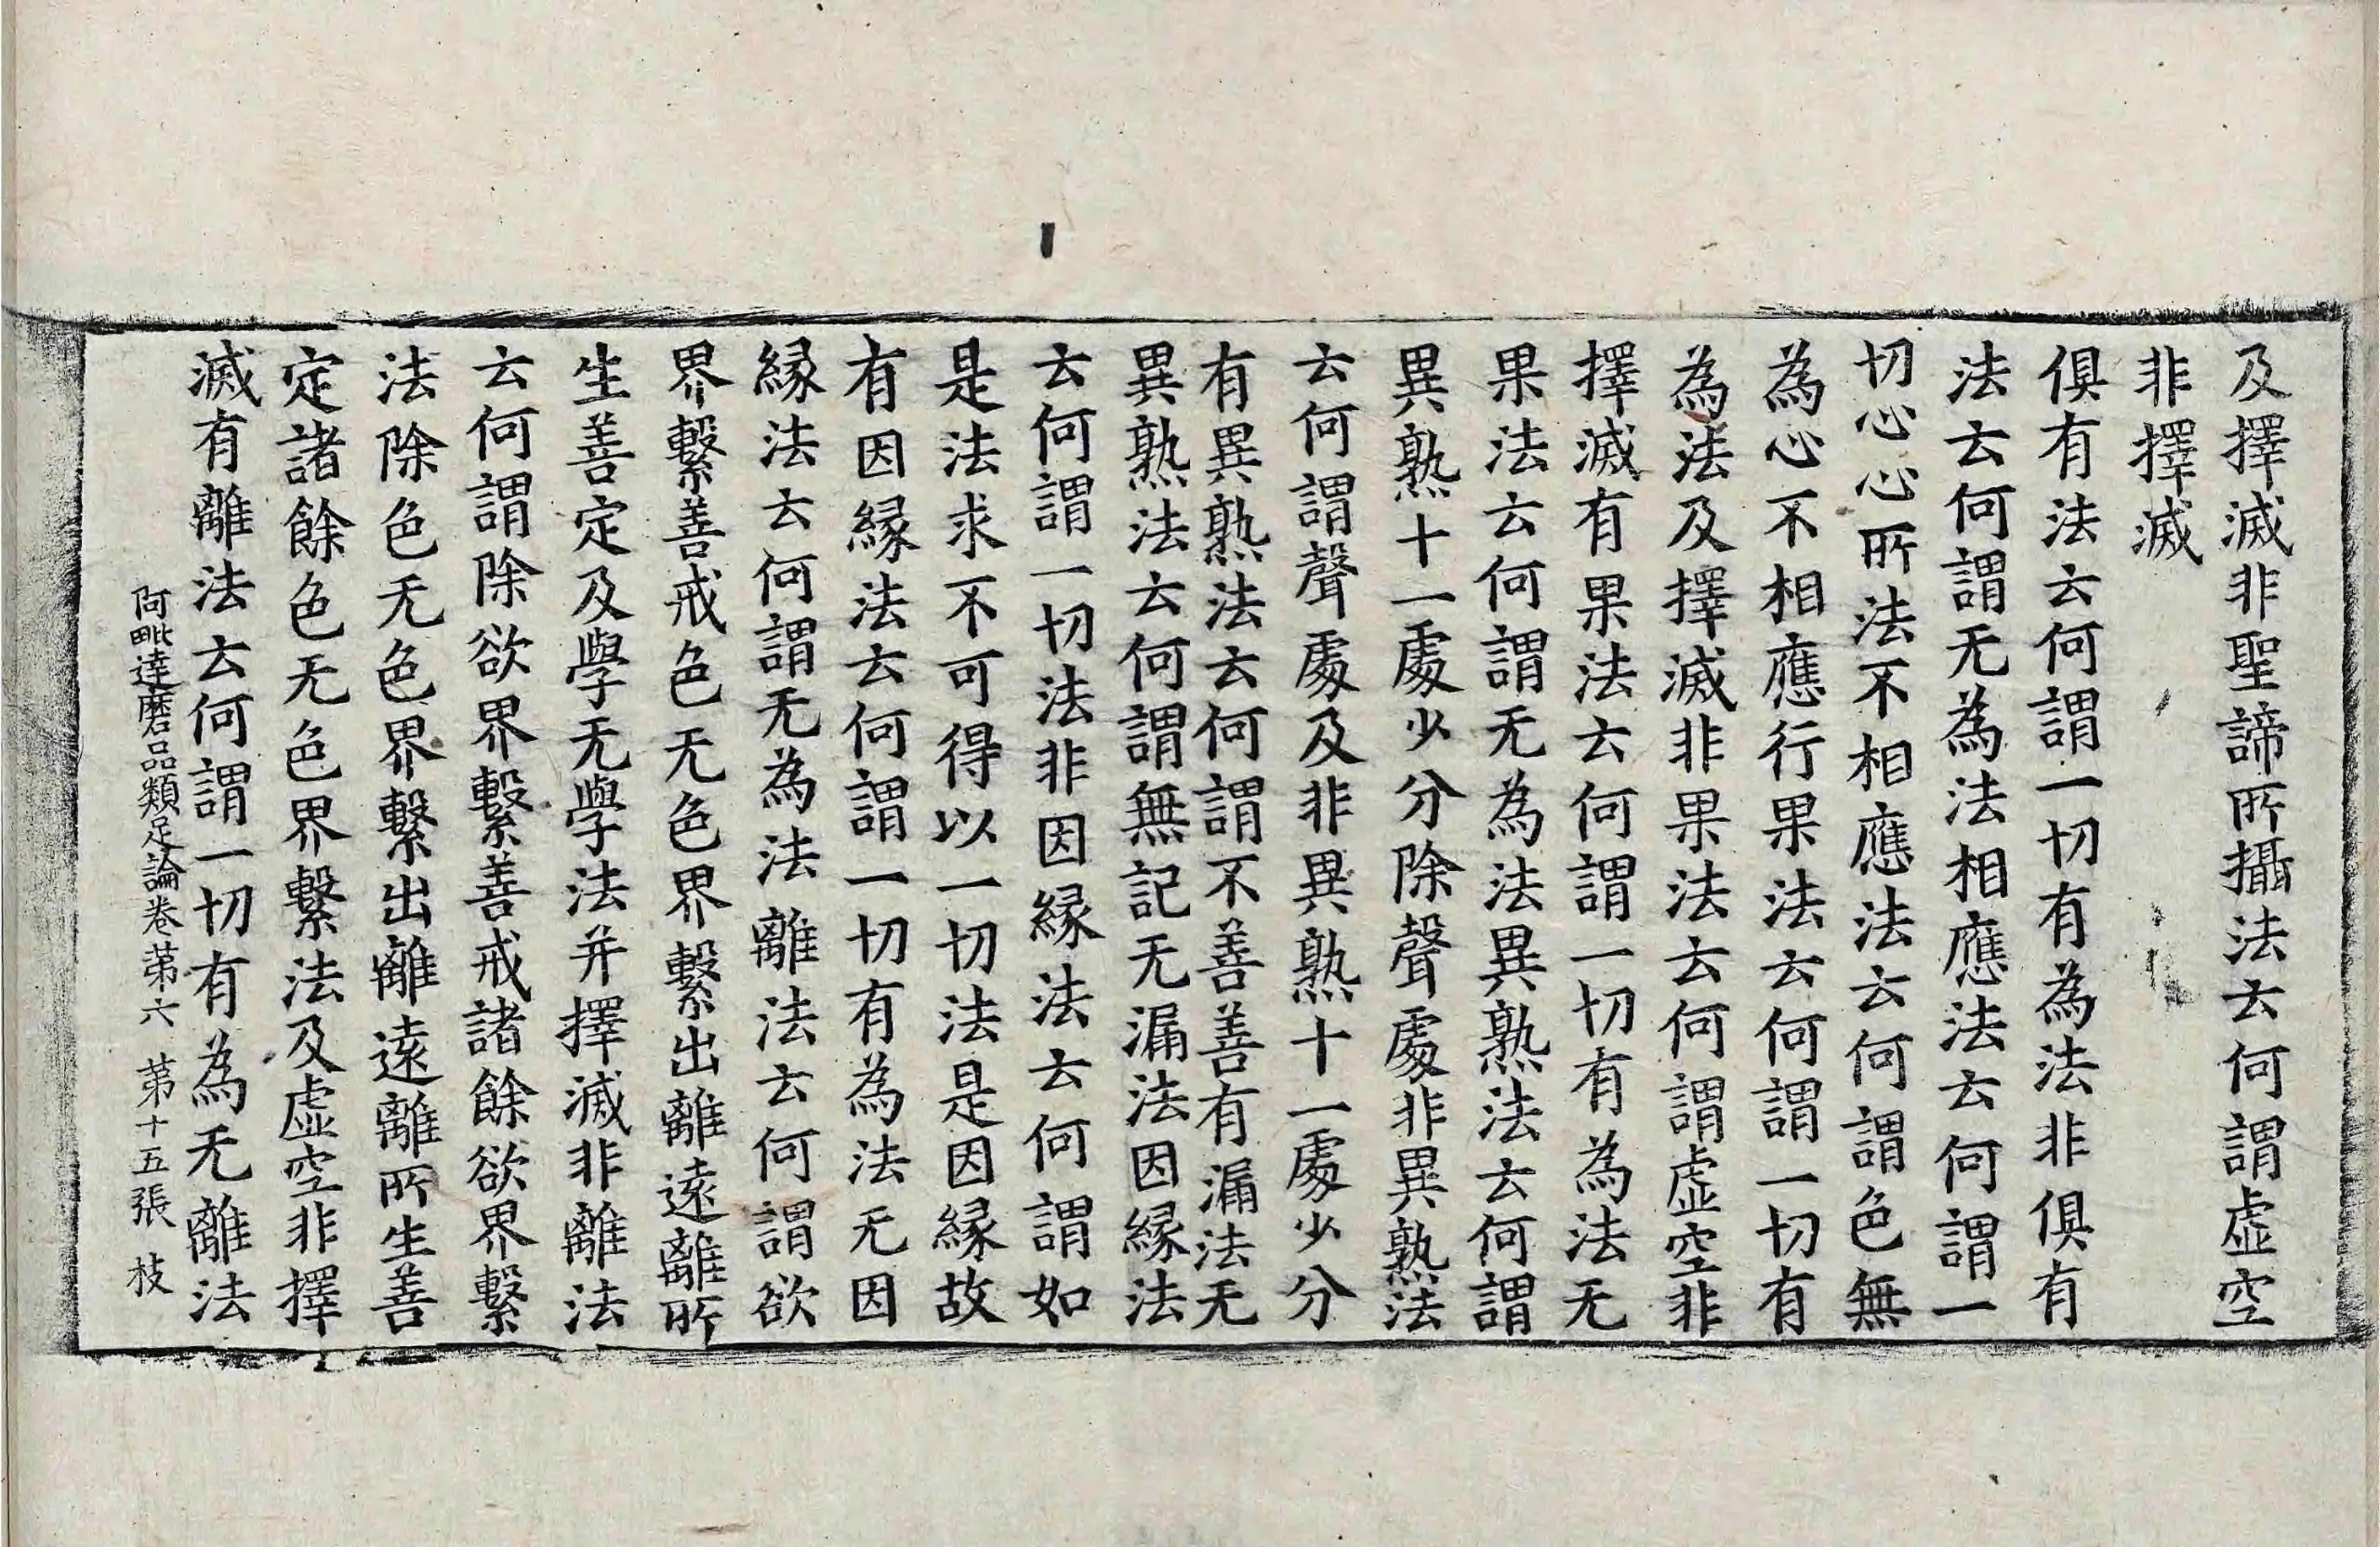 及擇滅非聖諦所攝法云何謂虛空
非擇滅
俱有法云何謂一切有為法非俱有
法云何謂无為法相應法云何謂一
切心心所法不相應法云何謂色無
為心不相應行果法云何謂一切有
為法及擇滅非果法云何謂虛空非
擇滅有果法云何謂一切有為法无
果法云何謂无為法異熟法云何謂
異熟十一處少分除聲處非異熟法
云何謂聲處及非異熟十一處少分
有異熟法云何謂不善善有漏法无
異熟法云何謂無記无漏法因緣法
云何謂一切法非因緣法云何謂如
是法求不可得以一切法是因緣故
有因緣法云何謂一切有為法无因
緣法云何謂无為法離法云何謂欲
界繫善戒色无色界繫出離遠離所
生善定及學无學法并擇滅非離法
云何謂除欲界繫善戒諸餘欲界繫
法除色无色界繫出離遠離所生善
定諸餘色无色界繫法及虛空非擇
滅有離法云何謂一切有為无離法
阿毗達磨品類足論卷第六 第十五張 枝